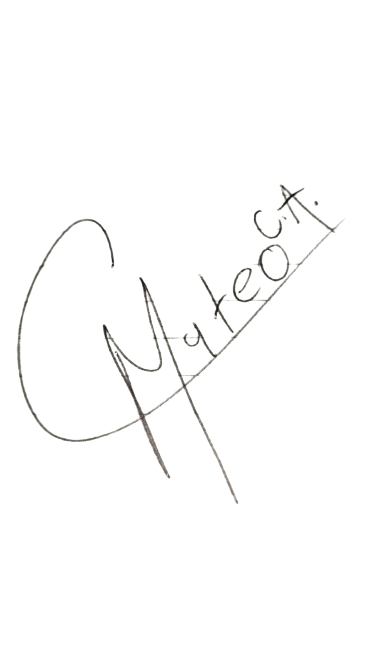 Mateo C.A.